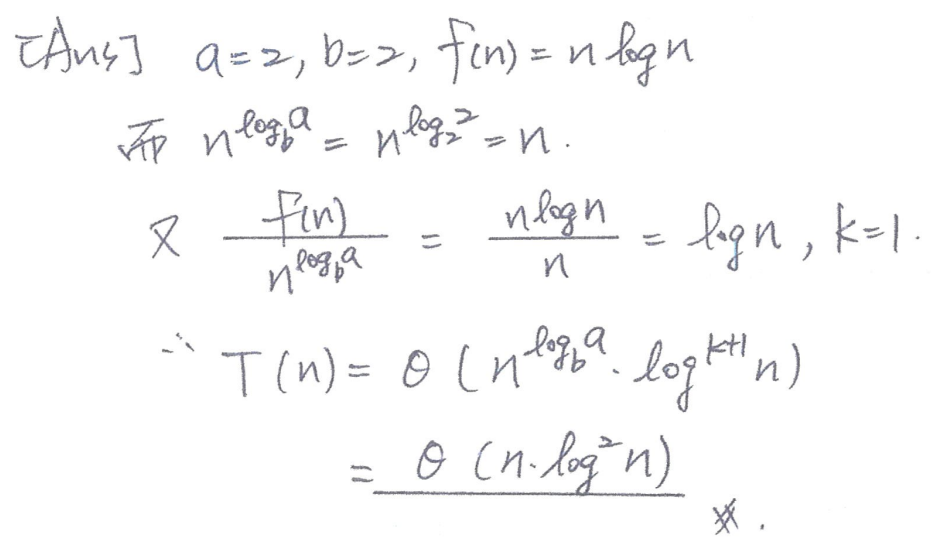 [Ans] a=2, b=2, f(n) = n log n
而 n^{log_b a} = n^{log_2 2} = n.
又 f(n) / n^{log_b a} = n log n / n = log n, k=1.
∴ T(n) = θ(n^{log_b a} · log^{k+1} n)
= θ(n·log² n) ※.